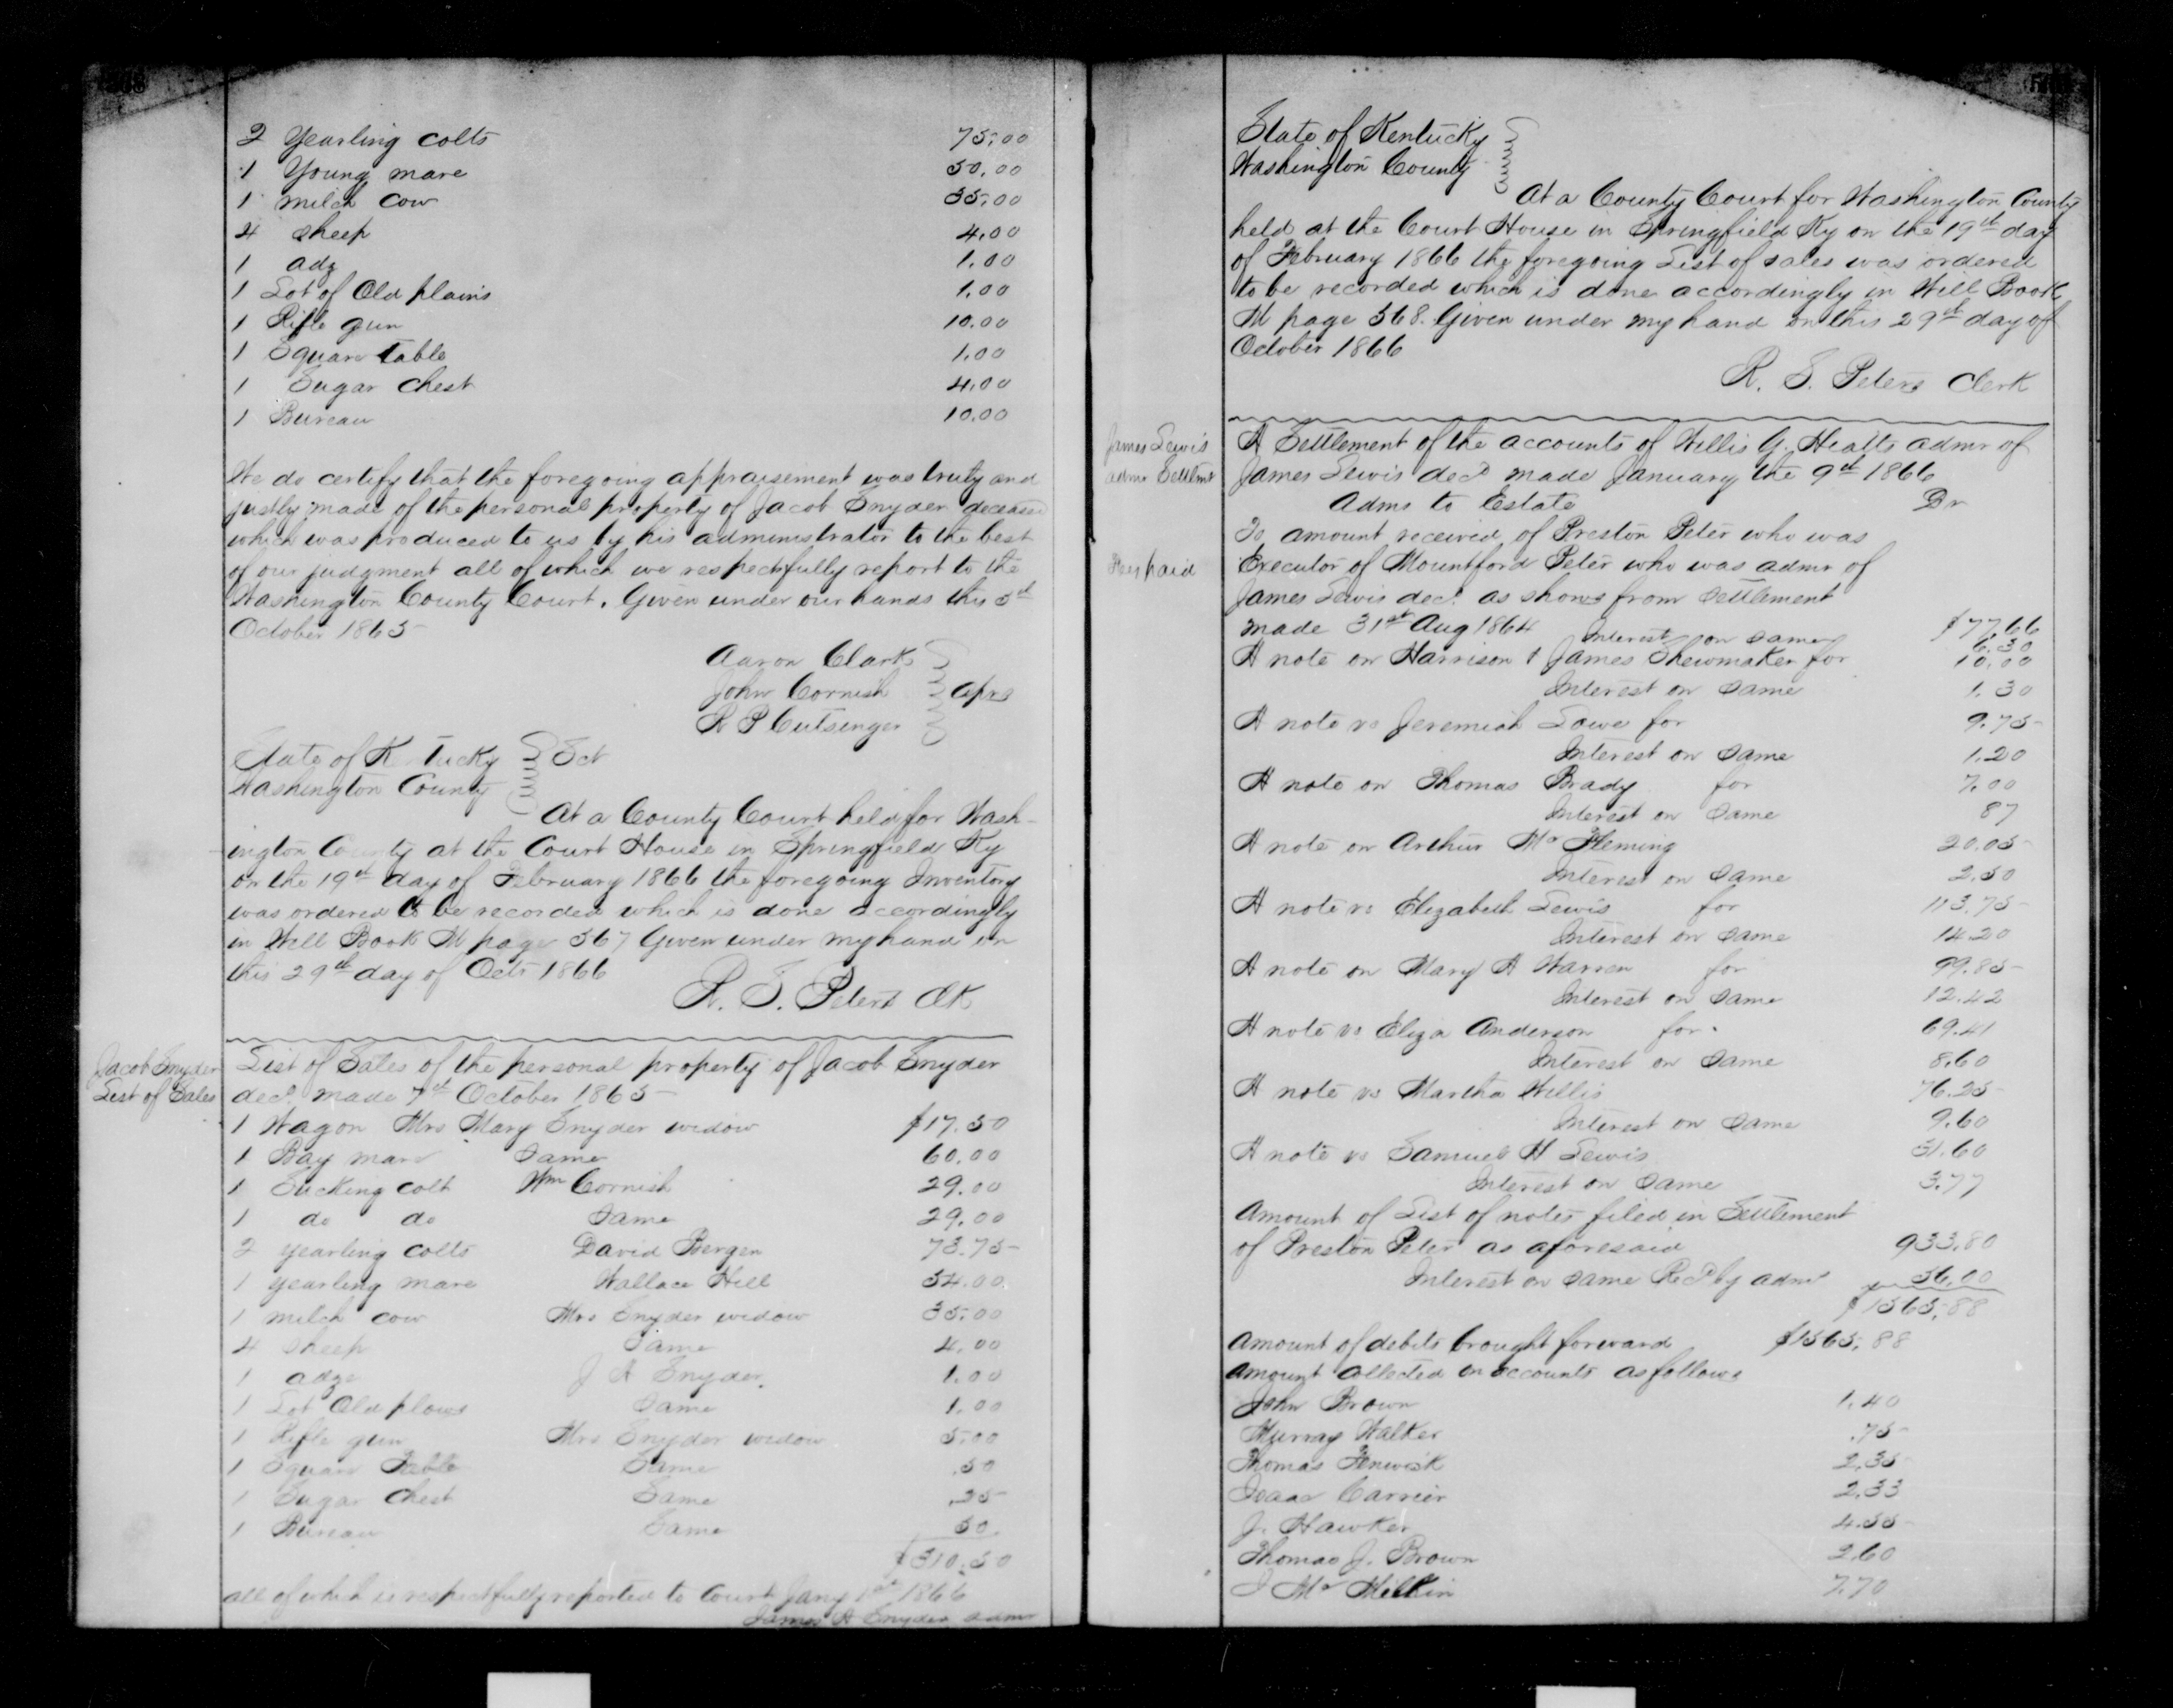 568
2 Yearling colts 75.00
1 Young mare 50.00
1 milch cow 35.00
4 sheep 4.00
1 adz 1.00
1 Lot of Old plains 1.00
1 Rifle gun 10.00
1 Square Table 1.00
1 Sugar chest 4.00
1 Bureau 10.00
We do certify that the foregoing appraisement was truly and
justly made of the personal property of Jacob Snyder deceased
which was produced to us by his administrator to the best
of our judgment all of which we respectfully report to the
Washington County Court. Given under our hands this 5th
October 1865
Aaron Clark
John Cornish aprs
R P Cutsinger
State of K tucky Sct
Washington County
At a County Court held for Wash-
ington County at the Court House in Springfield Ky
on the 19th day of February 1866 the foregoing Inventory
was ordered to be recorded which is done accordingly
in Will Book M page 567 Given under my hand on
this 29th day of Octr 1866
R. S. Peters Clk
Jacob Snyder
List of Sales
List of Sales of the personal property of Jacob Snyder
decd. made 7th October 1865
1 Wagon Mrs Mary Snyder widow $17.50
1 Bay mare Same 60.00
1 Sucking colt Wm Cornish 29.00
1 do do Same 29.00
2 yearling colts David Bergen 73.75
1 yearling mare Wallace Hill 54.00
1 milch cow Mrs Snyder widow 35.00
4 Sheep Same 4.00
1 adze J A Snyder 1.00
1 Lot Old plows Same 1.00
1 Rifle gun Mrs Snyder widow 5.00
1 Square Table Same .50
1 Sugar Chest Same .25
1 Bureau Same 50
$310.50
all of which is respectfully reported to Court Jany 1st 1866
James A Snyder admr
State of Kentucky
Washington County
At a County Court for Washington County
held at the Court House in Springfield Ky on the 19th day
of February 1866 the foregoing List of sales was ordered
to be recorded which is done accordingly in Will Book
M page 568. Given under my hand on this 29th day of
October 1866
R. S. Peters Clerk
James Lewis
admr Settlmt
A Settlement of the accounts of Willis G. Hiatts admr of
James Lewis decd made January the 9th 1866
Adms to Estate Dr
To amount received of Preston Peter who was
Fees paid
Executor of Mountford Peter who was admr of
James Lewis decd. as shows from Settlement
made 31st Aug 1864 $77.66
Interest on same 6.30
A note on Harrison & James Shewmaker for 10.00
Interest on same 1.30
A note vs Jeremiah Lowe for 9.75
Interest on same 1.20
A note on Thomas Brady for 7.00
Interest on same 87
A note on Arthur Mc Fleming 20.05
Interest on same 2.50
A note vs Elizabeth Lewis for 113.75
Interest on same 14.20
A note on Mary A Warren for 99.85
Interest on same 12.42
A note vs Eliza Anderson for 69.41
Interest on same 8.60
A note vs Martha Willis 76.25
Interest on same 9.60
A note vs Samuel H Lewis 31.60
Interest on same 3.77
Amount of List of notes filed in Settlement
of Preston Peter as aforesaid 933.80
Interest on same Recd by admr 56.00
$1565.88
Amount of debits brought forward $1565.88
Amount Collected on accounts as follows
John Brown 1.40
Murray Walker .75
Thomas Fenwick 2.35
Isaac Carrier 2.33
J. Hawker 4.55
Thomas J. Brown 2.60
J Mc Millin 7.70